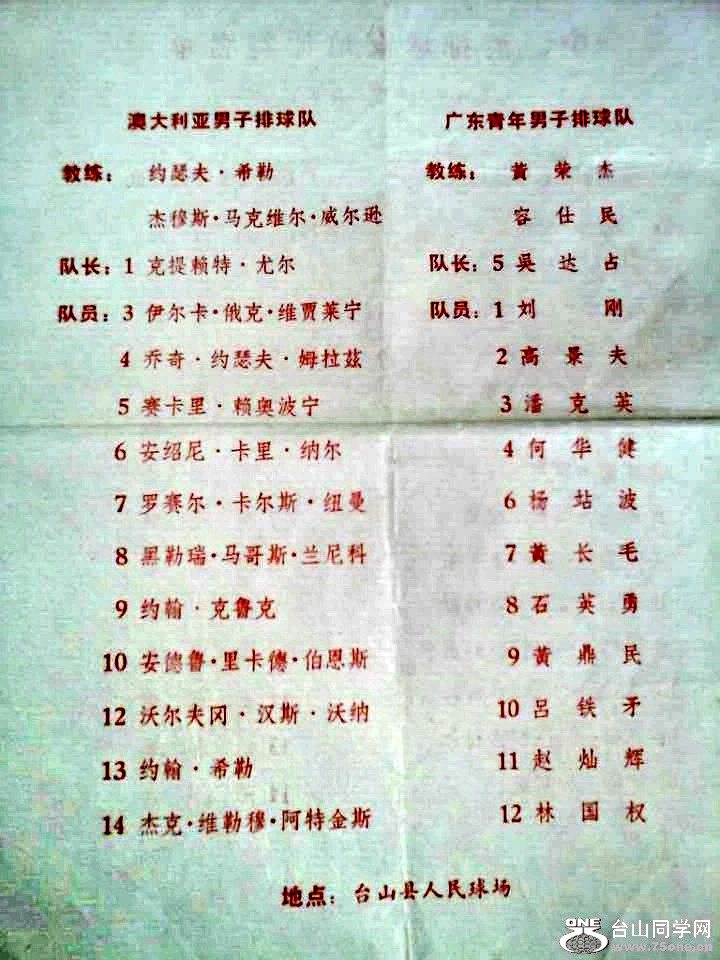 澳大利亚男子排球队
教练： 约瑟夫·希勒
杰穆斯·马克维尔·威尔逊
队长：1 克提赖特·尤尔
队员：3 伊尔卡·俄克·维贾莱宁
4 乔奇·约瑟夫·姆拉兹
5 赛卡里·赖奥波宁
6 安绍尼·卡里·纳尔
7 罗赛尔·卡尔斯·纽曼
8 黑勒瑞·马哥斯·兰尼科
9 约翰·克鲁克
10 安德鲁·里卡德·伯恩斯
12 沃尔夫冈·汉斯·沃纳
13 约翰·希勒
14 杰克·维勒穆·阿特金斯
广东青年男子排球队
教练： 黄荣杰
容仕民
队长：5 吴达占
队员：1 刘刚
2 高景夫
3 潘克英
4 何华健
6 杨站波
7 黄长毛
8 石英勇
9 黄鼎民
10 吕铁矛
11 赵灿辉
12 林国权
地点：台山县人民球场
ONE
台山同学网
www.75one.cn